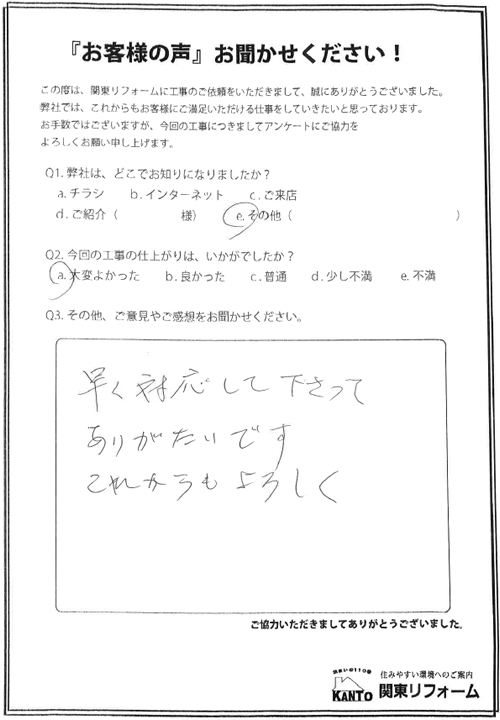 『お客様の声』お聞かせください！
この度は、関東リフォームに工事のご依頼をいただきまして、誠にありがとうございました。
弊社では、これからもお客様にご満足いただける仕事をしていきたいと思っております。
お手数ではございますが、今回の工事につきましてアンケートにご協力を
よろしくお願い申し上げます。
Q1. 弊社は、どこでお知りになりましたか？
a. チラシ　b. インターネット　c. ご来店
d. ご紹介（　　　　　様）　e. その他（　　　　　　　　　　　　）
Q2. 今回の工事の仕上がりは、いかがでしたか？
a. 大変よかった　b. 良かった　c. 普通　d. 少し不満　e. 不満
Q3. その他、ご意見やご感想をお聞かせください。
早く対応して下さって
ありがたいです
これからもよろしく
ご協力いただきましてありがとうございました。
住みやすい環境へのご案内
KANTO 関東リフォーム